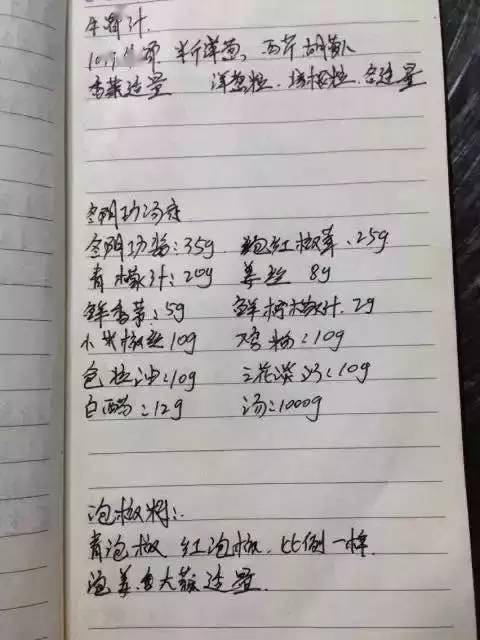 牛骨汁
半斤洋葱、西芹 胡萝卜
香菜适量 洋葱粒、 各适量
冬阴功汤底
冬阴功酱:35g 泡红椒茸:25g
青柠檬汁:20g 姜丝 8g
鲜香茅:5g 鲜柠檬叶:2g
小米椒丝 10g 鸡粉:10g
色拉油:10g 三花淡奶:10g
白醋:12g 汤:1000g
泡椒料:
青泡椒 红泡椒,比例一样
泡姜 适量